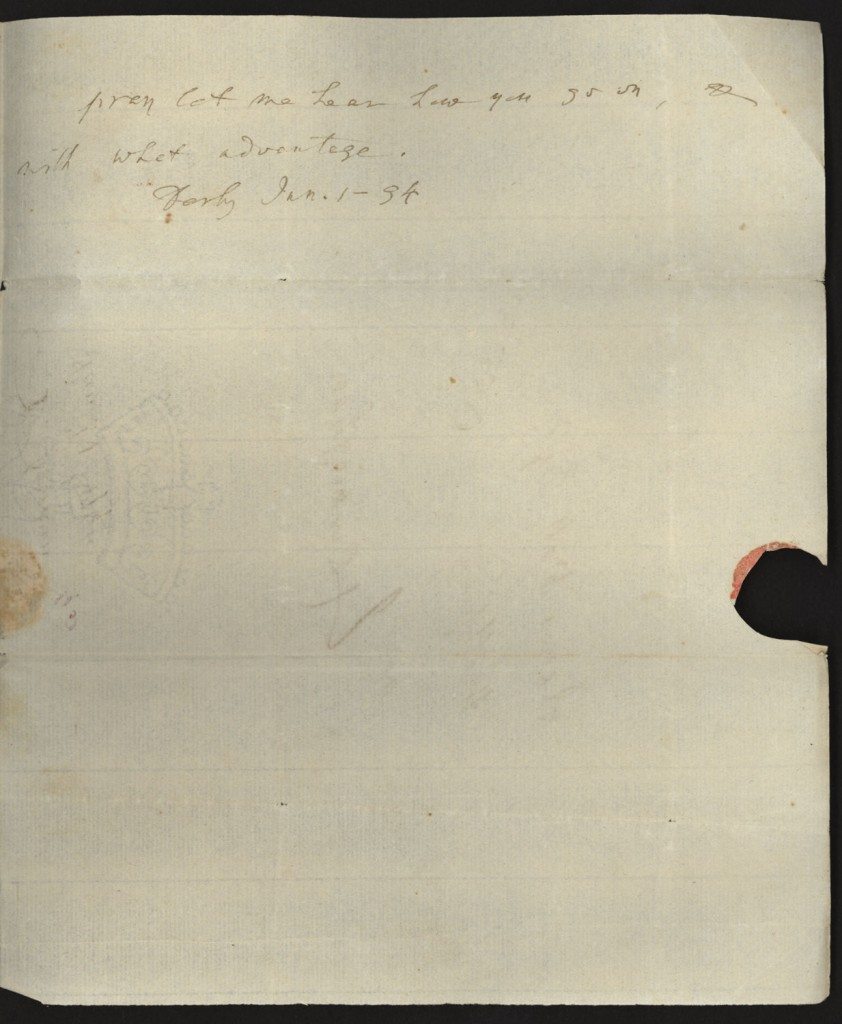 pray let me hear how you go on, &
with what advantage.
Derby Jan. 1- 94